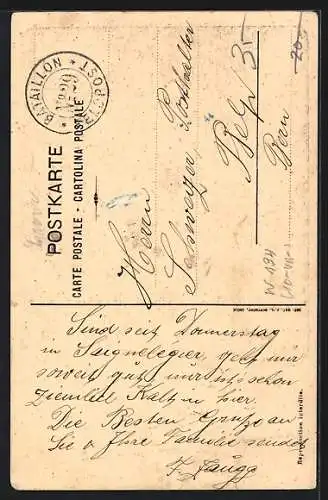 BATAILLON
FELDPOST
POSTKARTE
CARTE POSTALE - CARTOLINA POSTALE
Herrn
Schweizer, Posthalter
Belp
Bern
Sind seit Donnerstag
in Saignelégier, geht mir
soweit gut, nur ist's schon
ziemlich Kalt hier.
Die Besten Grüße an
Sie & Ihre Familie sendet
F. Zaugg
Reproduction interdite.